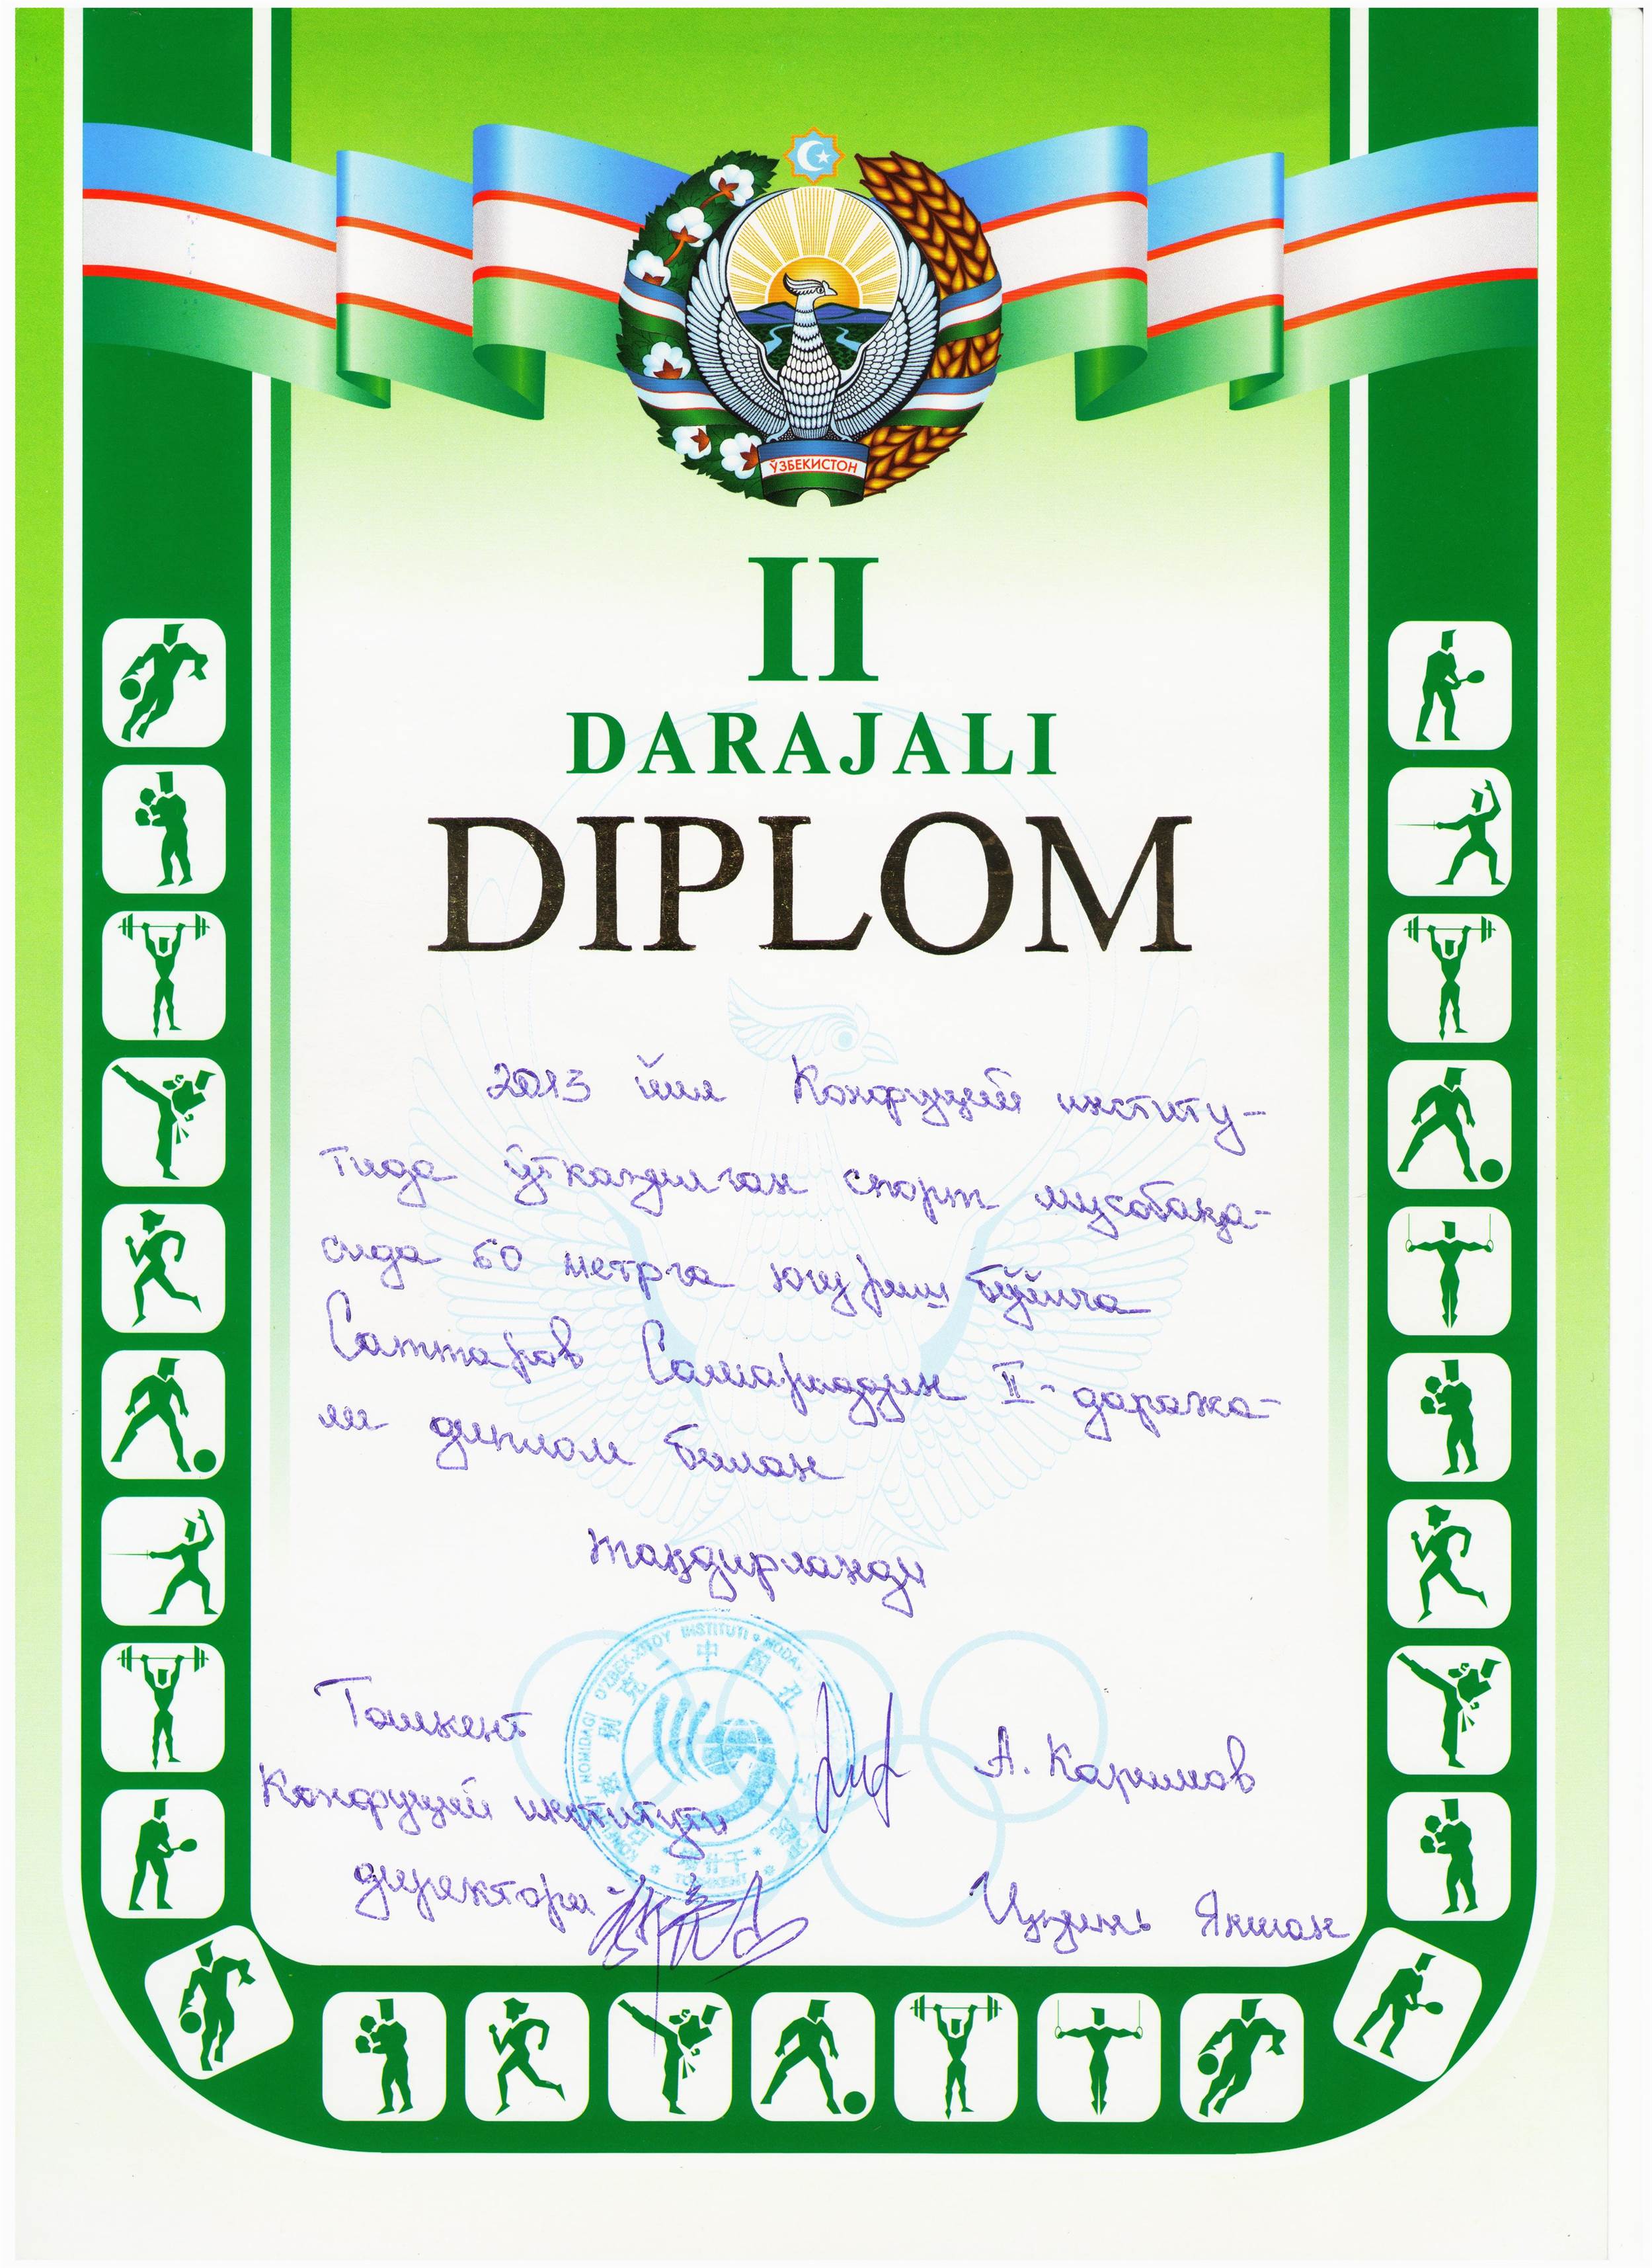 ЎЗБЕКИСТОН
II
DARAJALI
DIPLOM
2013 йил Конфуций институ-
тида ўтказилган спорт мусобақа-
сида 60 метрга югуриш бўйича
Саттаров Самариддин II-даража-
ли диплом билан
тақдирланди
Тошкент
Конфуций институти
директори
А. Каримов
Цзинь Якшан
O'ZBEK-XITOY INSTITUTI
NOMIDAGI
TOSHKENT